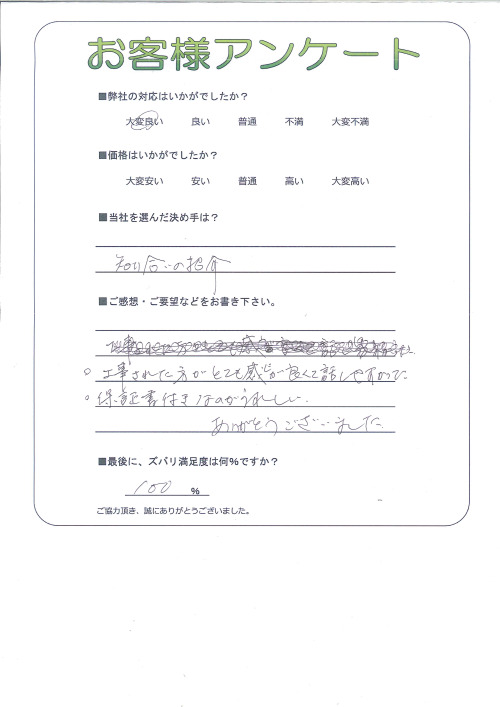 お客様アンケート
■弊社の対応はいかがでしたか？
大変良い 良い 普通 不満 大変不満
■価格はいかがでしたか？
大変安い 安い 普通 高い 大変高い
■当社を選んだ決め手は？
知り合いの紹介
■ご感想・ご要望などをお書き下さい。
○ 工事された方がとても感じが良くて話しやすかった
○ 保証書付きなのがうれしい.
ありがとうございました.
■最後に、ズバリ満足度は何%ですか？
100 %
ご協力頂き、誠にありがとうございました。